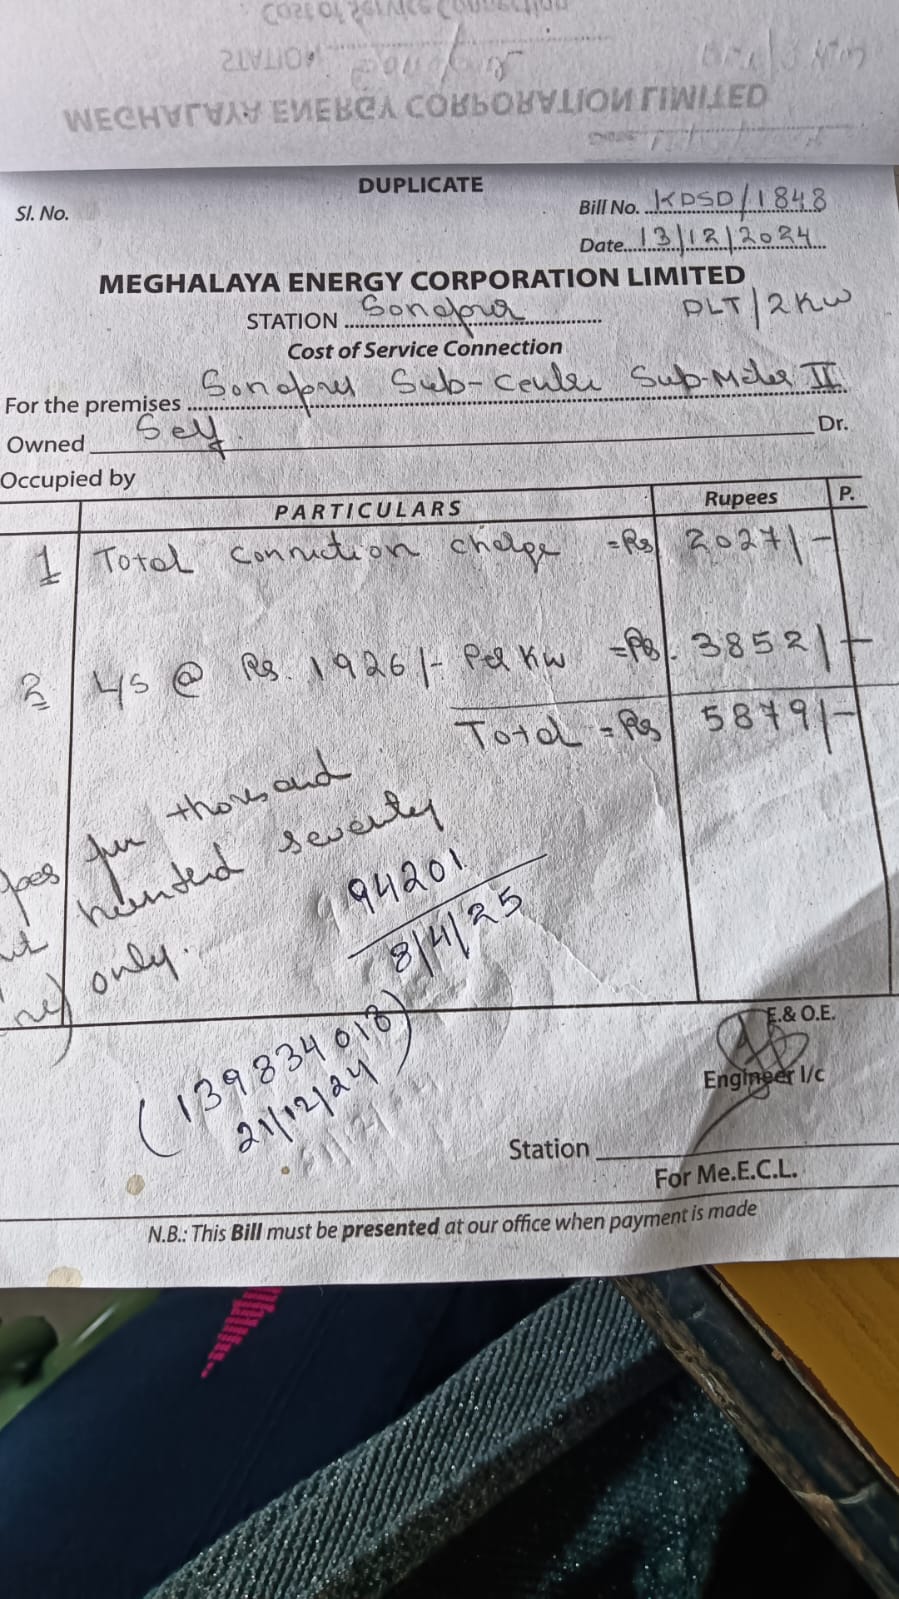 Cost of Service Connection
STATION
MEGHALAYA ENERGY CORPORATION LIMITED
DUPLICATE
Sl. No.
Bill No. KDSD/1848
Date 13/12/2024
MEGHALAYA ENERGY CORPORATION LIMITED
STATION Sonapur
DLT/2KW
Cost of Service Connection
For the premises Sonapur Sub-Center Sub-Meter II
Owned Self
Dr.
Occupied by
PARTICULARS Rupees P.
1 Total Connection charge =Rs 2027/-
2 4S @ Rs. 1926/- Per KW =Rs. 3852/-
Total = Rs 5879/-
thousand
hundred seventy
only.
94201
8/4/25
(139834018)
21/12/24
E.& O.E.
Engineer I/c
Station
For Me.E.C.L.
N.B.: This Bill must be presented at our office when payment is made